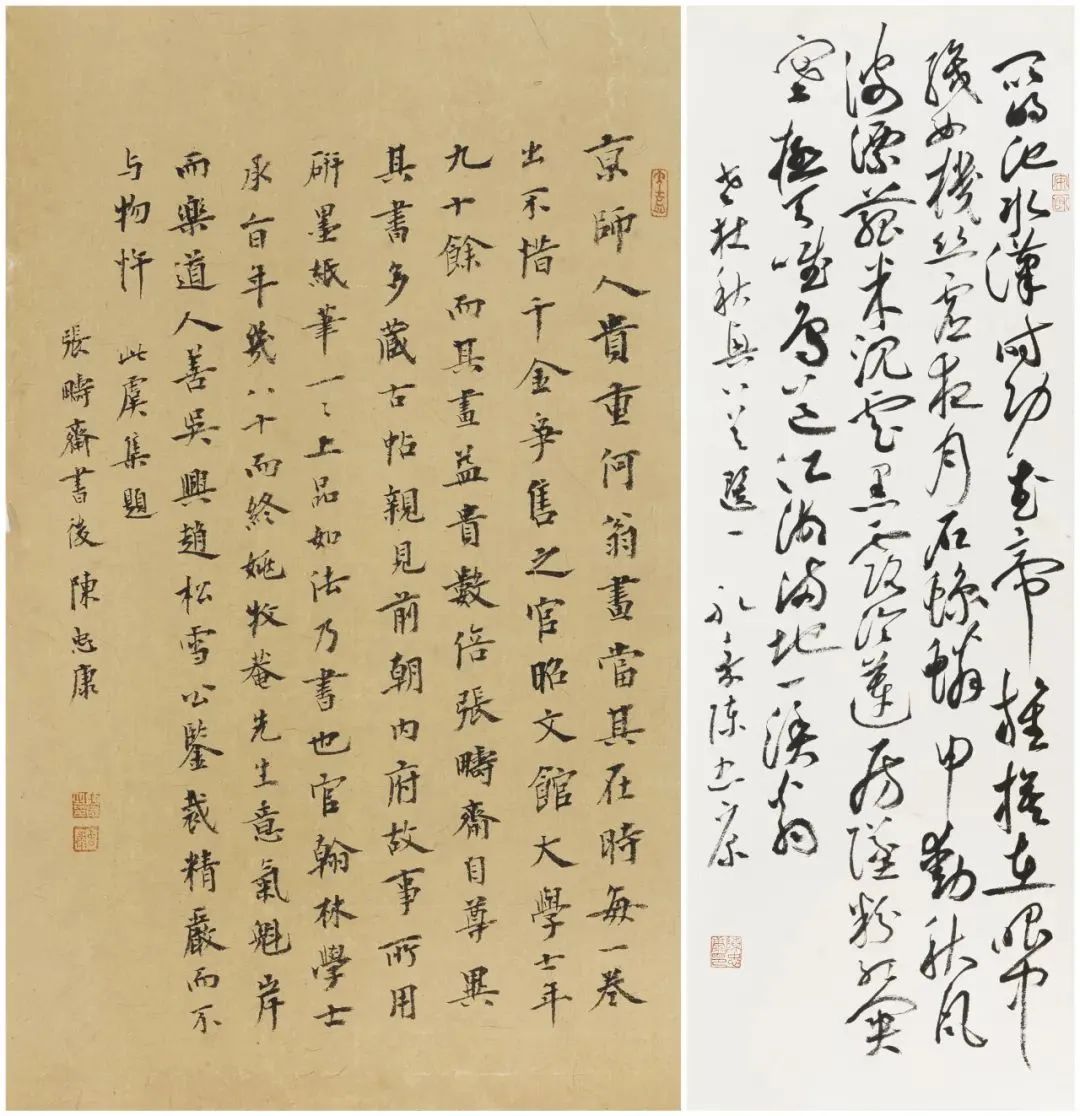 京師人貴重何翁畫當其在時每一卷
出不惜千金爭售之官昭文館大學士年
九十餘而其畫益貴數倍張疇齋自尊異
其書多藏古帖親見前朝內府故事所用
研墨紙筆一々上品如法乃書也官翰林學士
承旨年幾八十而終姚牧菴先生意氣魁岸
而樂道人善吳興趙松雪公鑒裁精嚴而不
与物忤 此虞集題
張疇齋書後 陳忠康
昆明池水漢時功武帝旌旗在眼中
織女機絲虛夜月石鯨鱗甲動秋風
波漂菰米沉雲黑露冷蓮房墜粉紅關
塞極天唯鳥道江湖滿地一漁翁
老杜秋興八首選一 永嘉陳忠康